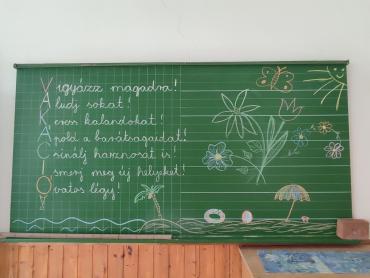 Vigyázz magadra!
Aludj sokat!
Keress kalandokat!
Ápold a barátságaidat!
Csinálj hasznosat is!
Ismerj meg új helyeket!
Óvatos légy!